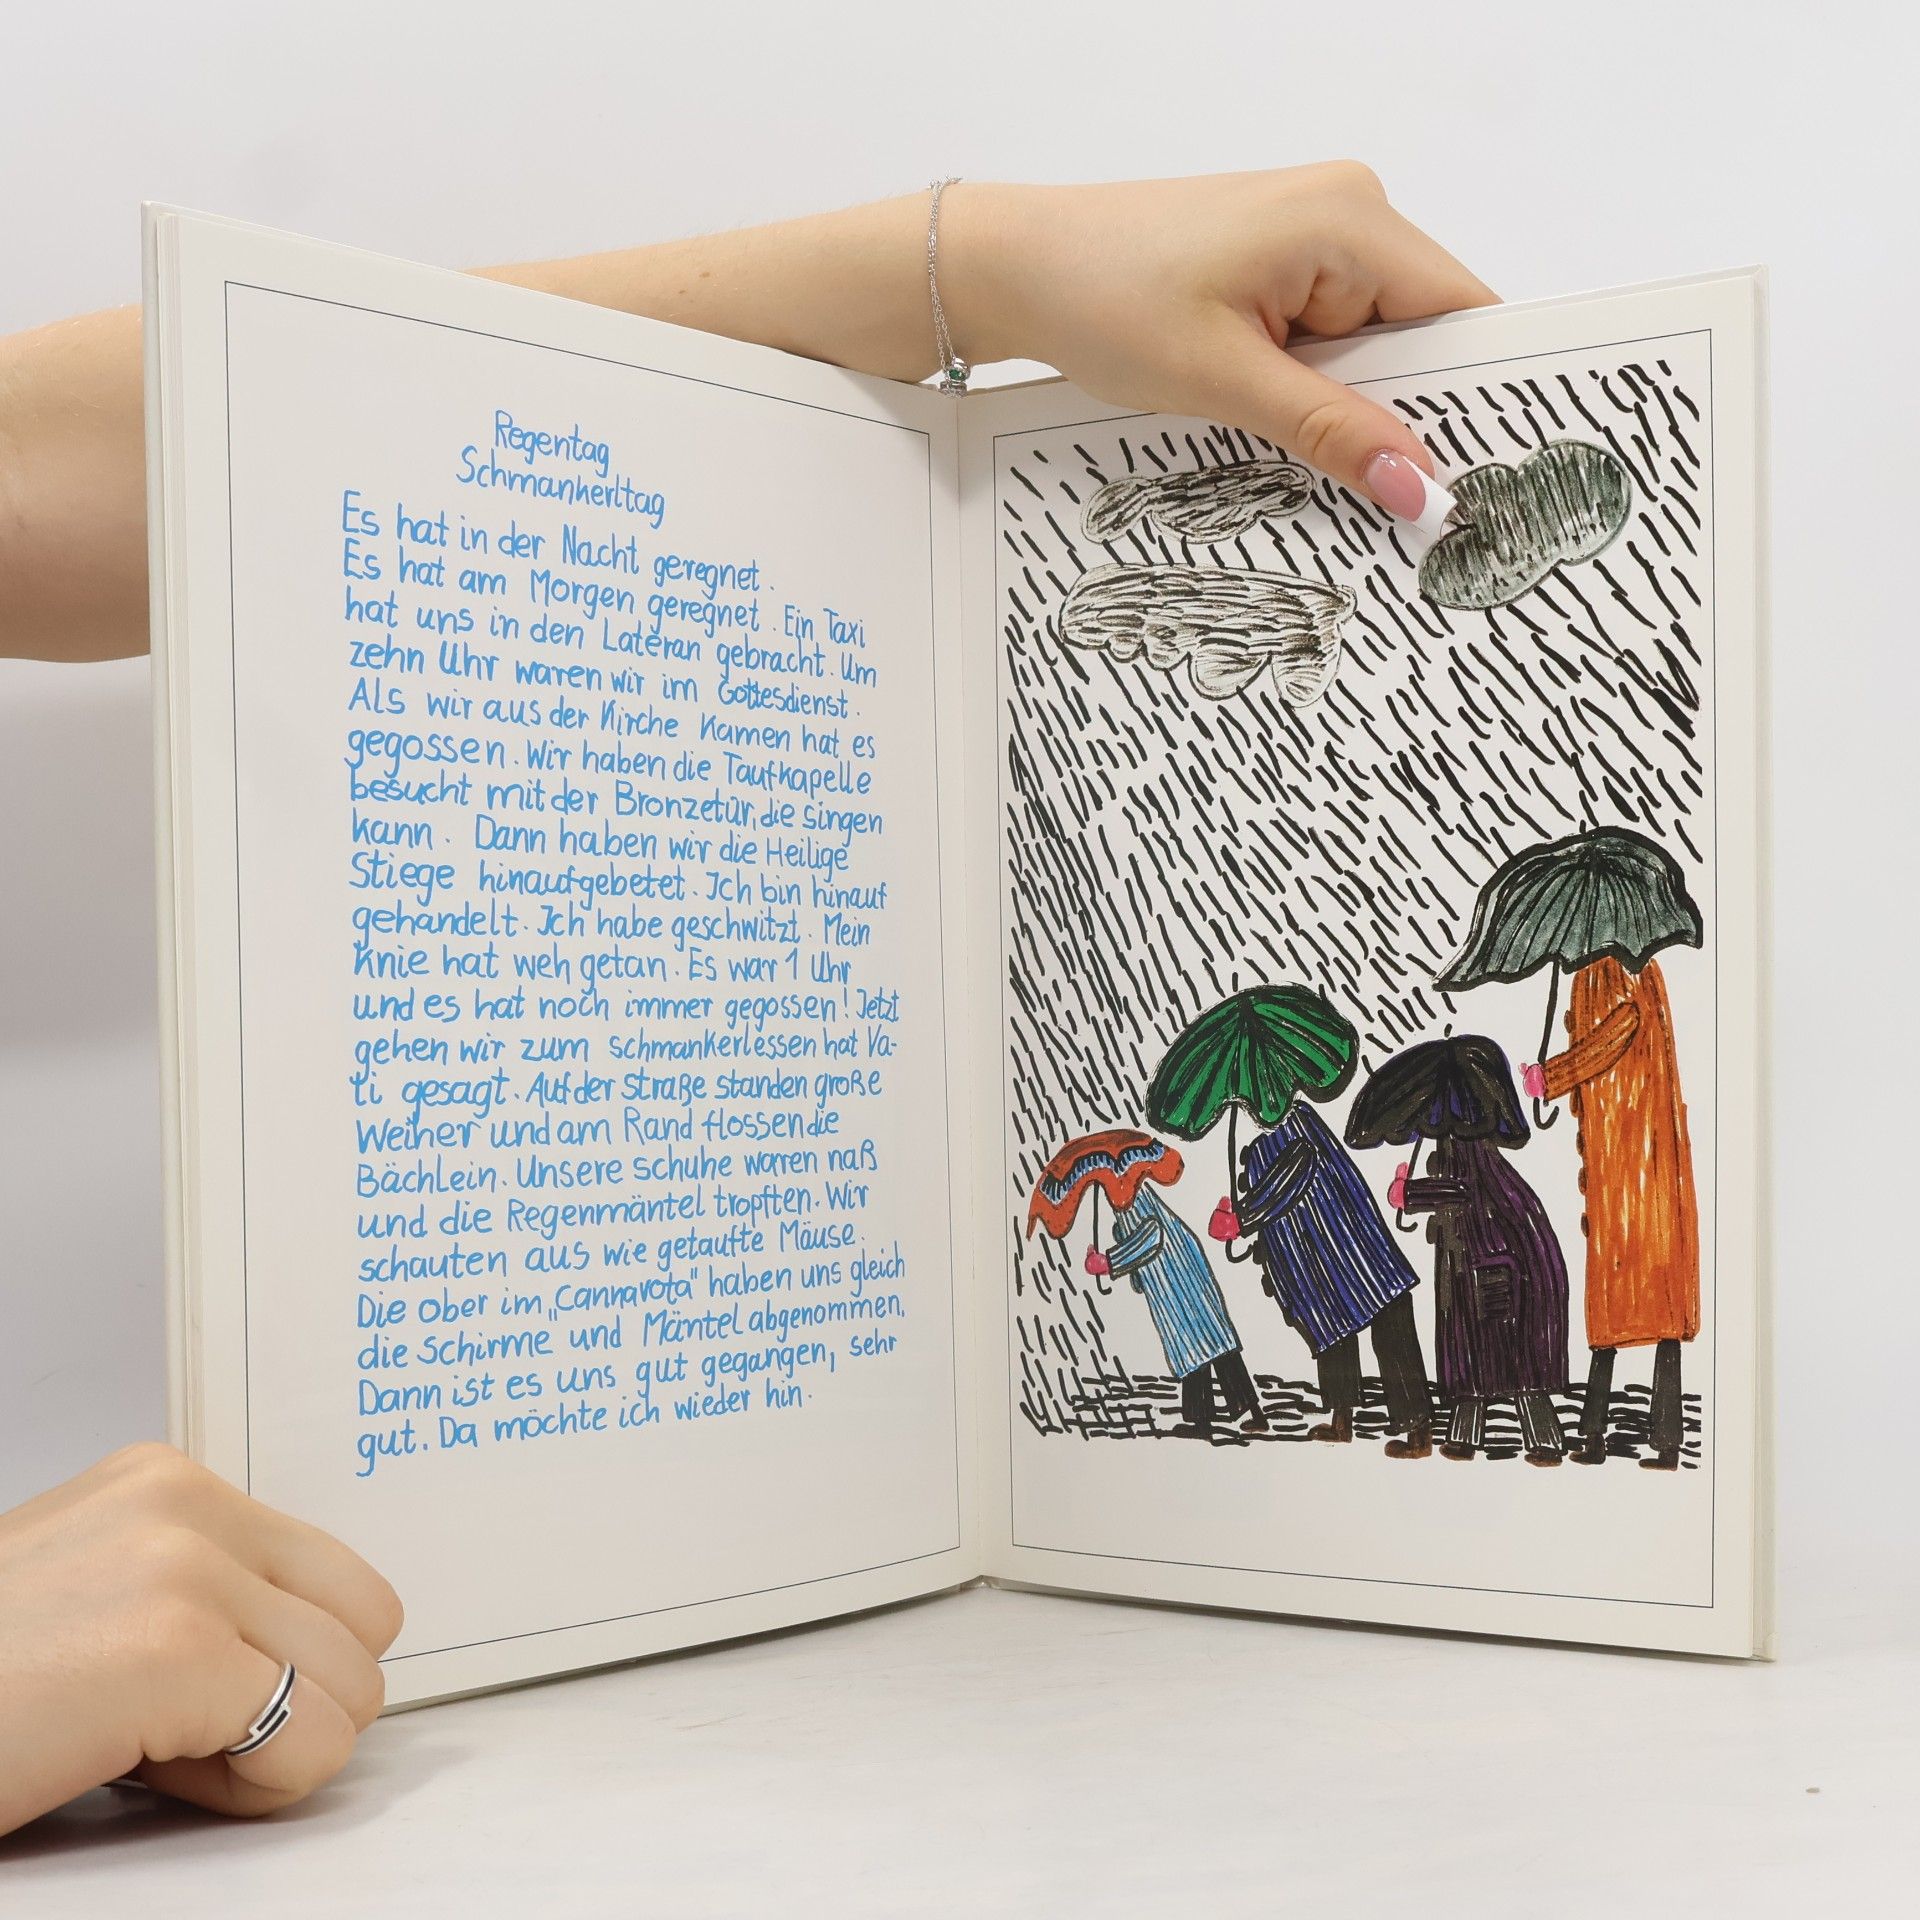 Regentag
Schmankerltag
Es hat in der Nacht geregnet.
Es hat am Morgen geregnet. Ein Taxi
hat uns in den Lateran gebracht. Um
zehn Uhr waren wir im Gottesdienst.
Als wir aus der Kirche kamen hat es
gegossen. Wir haben die Taufkapelle
besucht mit der Bronzetür, die singen
kann. Dann haben wir die Heilige
Stiege hinaufgebetet. Ich bin hinauf
gehandelt. Ich habe geschwitzt. Mein
Knie hat weh getan. Es war 1 Uhr
und es hat noch immer gegossen! Jetzt
gehen wir zum schmankerlessen hat Va-
ti gesagt. Auf der Straße standen große
Weiher und am Rand flossen die
Bächlein. Unsere schuhe waren naß
und die Regenmäntel tropften. Wir
schauten aus wie getaufte Mäuse.
Die ober im „Cannavota" haben uns gleich
die Schirme und Mäntel abgenommen.
Dann ist es uns gut gegangen, sehr
gut. Da möchte ich wieder hin.